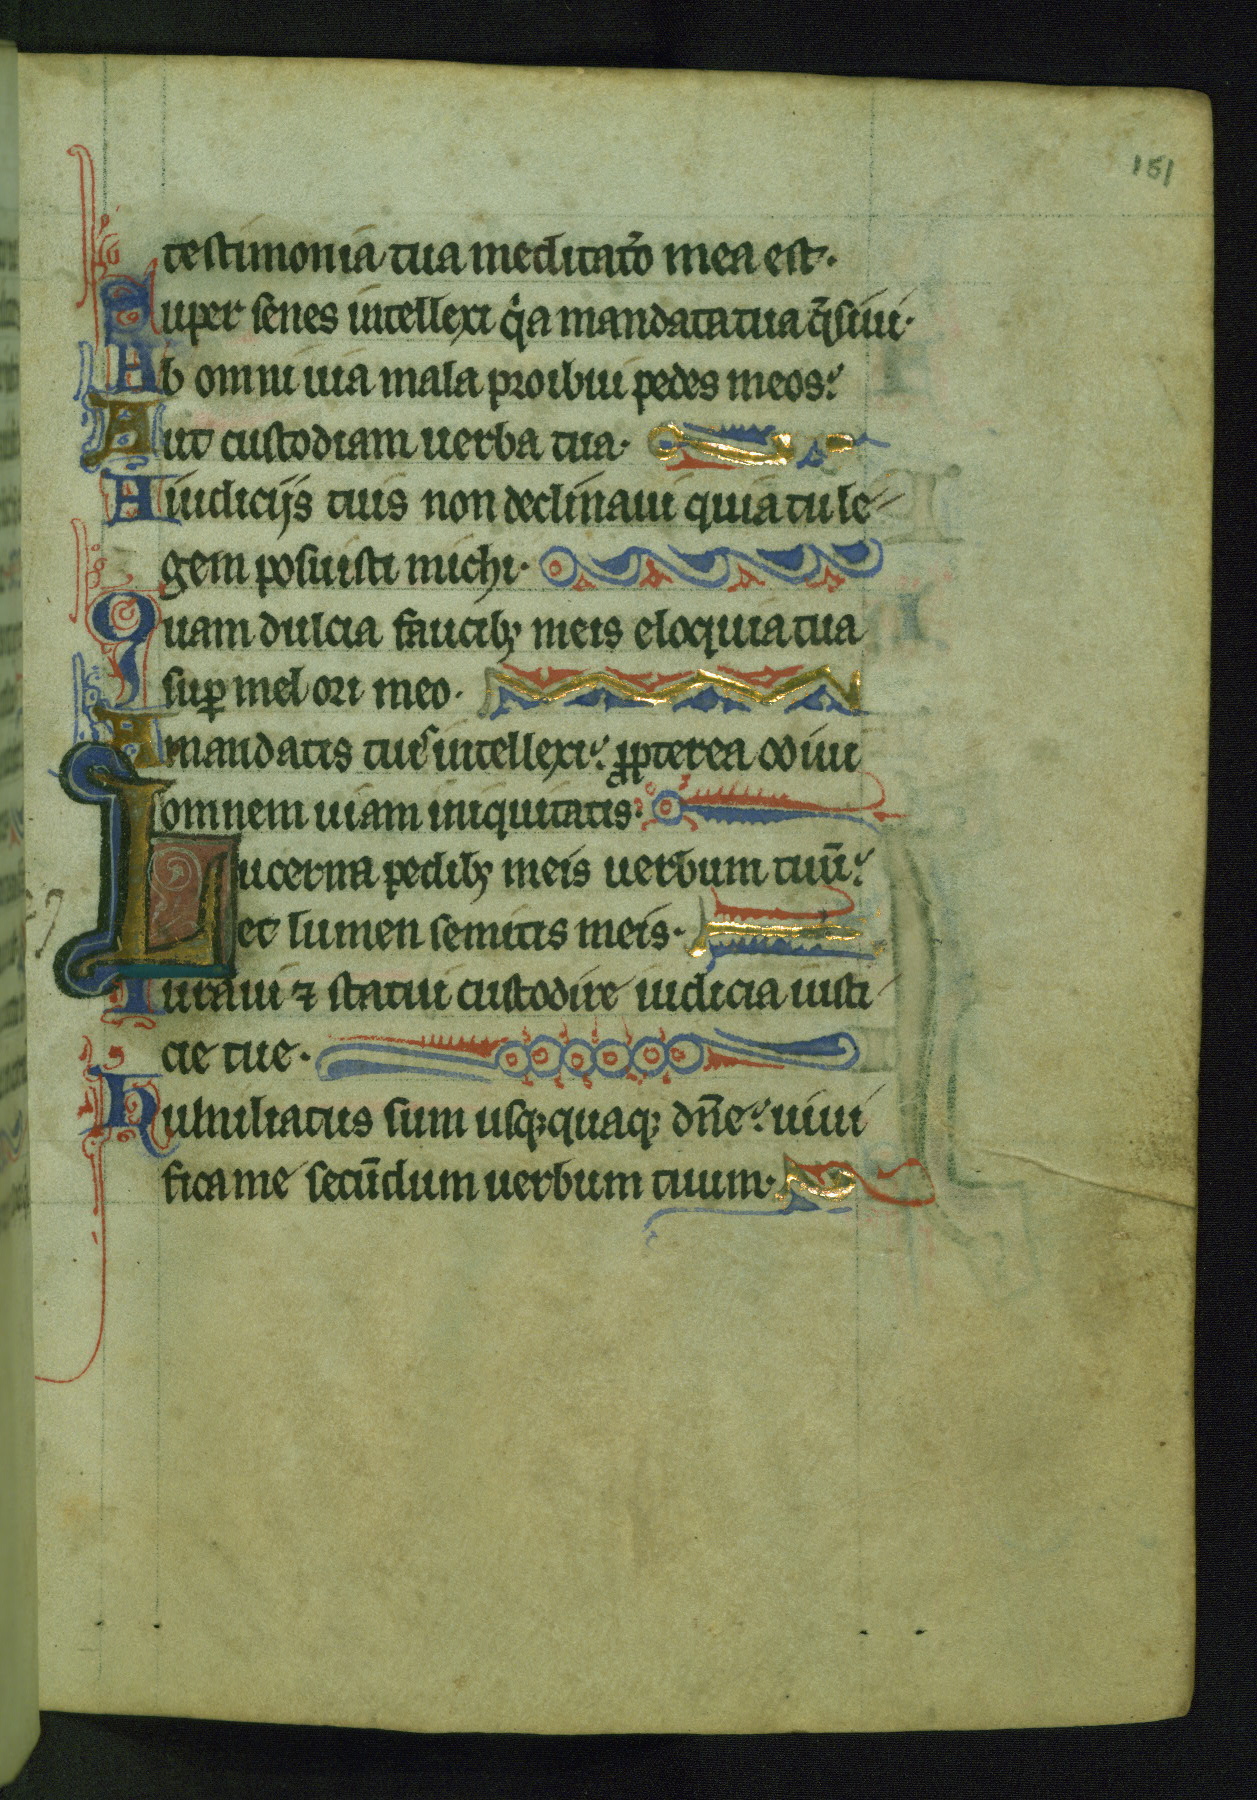 151
testimonia tua meditat̄o mea est·
Super senes intellexi q̇a mandata tua q̄siui·
Ab omni uia mala proibui pedes meos:
Aut custodiam uerba tua·
A iudicijs tuis non declinaui quia tu le
gem posuisti michi·
Quam dulcia faucibꝫ meis eloquia tua
suꝑ mel ori meo·
A mandatis tuis intellexi: ꝓpterea odiui
omnem uiam iniquitatis·
Lucerna pedibꝫ meis uerbum tuū:
et lumen semitis meis·
Iuraui ⁊ statui custodire iudicia iusti
cie tue·
Humiliatus sum usqꝫquaqꝫ dn̄e: uiui
fica me secūdum uerbum tuum·